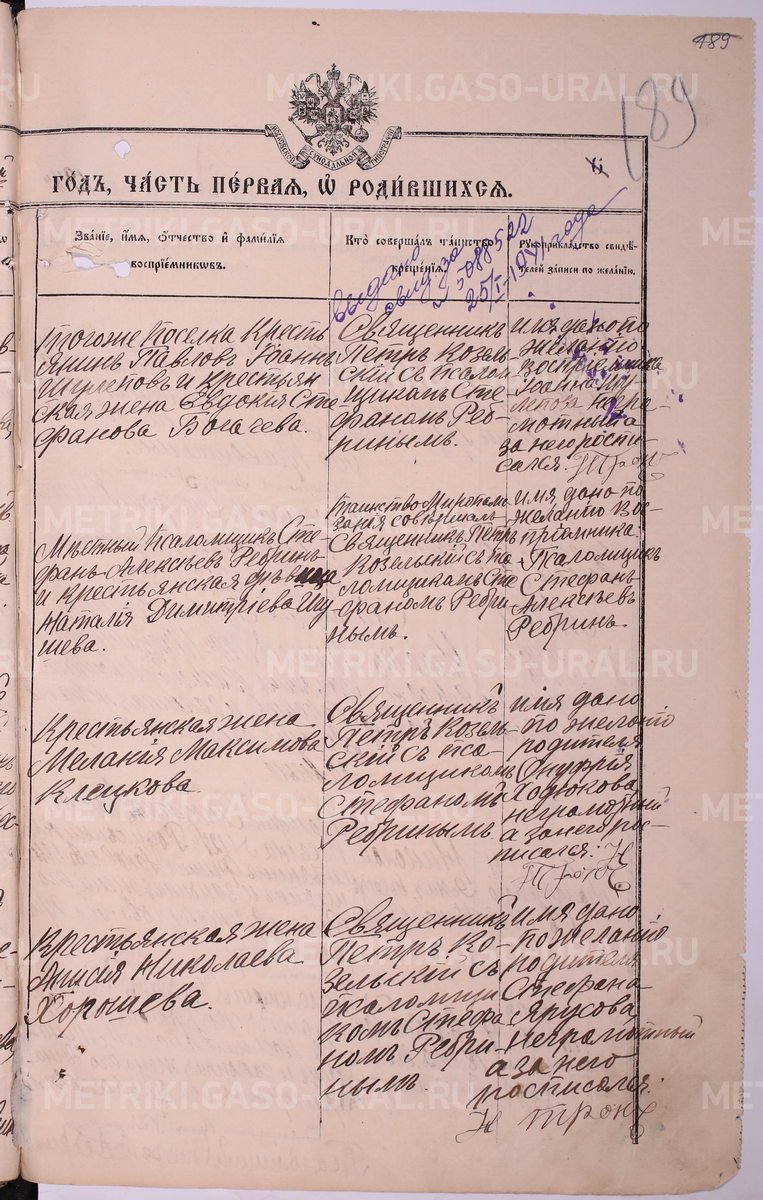 189
189
МОСКОВСКОЙ СѴНОДАЛЬНОЙ ТИПОГРАФІИ
ГОДЪ, ЧАСТЬ ПЕРВАЯ, Ѽ РОДИВШИХСЯ.
Званіе, имя, отчество и фамилія
воспріемниковъ.
Кто совершалъ таинство
крещенія.
Рукоприкладство свидѣ-
телей записи по желанію.
выдано
свид за
№ 5088522
25/I-1941 года
Тогоже поселка Кресть
янинъ Павловъ Іоаннъ
и Крестьян
ская жена Евдокия Сте
фанова Богачева.
Священникъ
Петръ Козель
скій съ псалом
щикомъ Сте
фаномъ Реб-
ринымъ.
имя дано по
желанію
воспріемника
Іоанна
неграмотный а
за него роспи-
сался:
Мѣстный Псаломщикъ Сте
фанъ Алексѣевъ Ребринъ
и крестьянская дѣвица
Наталія Димитріева Шу
шева.
Таинство Миропома
занія совершалъ
Священникъ Петръ
Козельскій съ пса
ломщикомъ Сте
фаномъ Ребри
нымъ.
имя дано по
желанію вос-
пріемника
Псаломщикъ
Стефанъ
Алексѣевъ
Ребринъ.
Крестьянская жена
Меланія Максимова
Клецкова.
Священникъ
Петръ Козель-
скій съ пса-
ломщикомъ
Стефаномъ
Ребринымъ.
имя дано
по желанію
родителя
Онуфрія
неграмотный
а за него рос-
писался: Н
Трон
Крестьянская жена
Анисія Николаева
Хорошева.
Священникъ
Петръ Ко-
зельскій съ
псаломщи
комъ Стефа
номъ Ребри-
нымъ.
имя дано
по желанію
родителя
Стефана
Ярусова
неграмотный
а за него
росписался:
Н Трон
METRIKI.GASO-URAL.RU